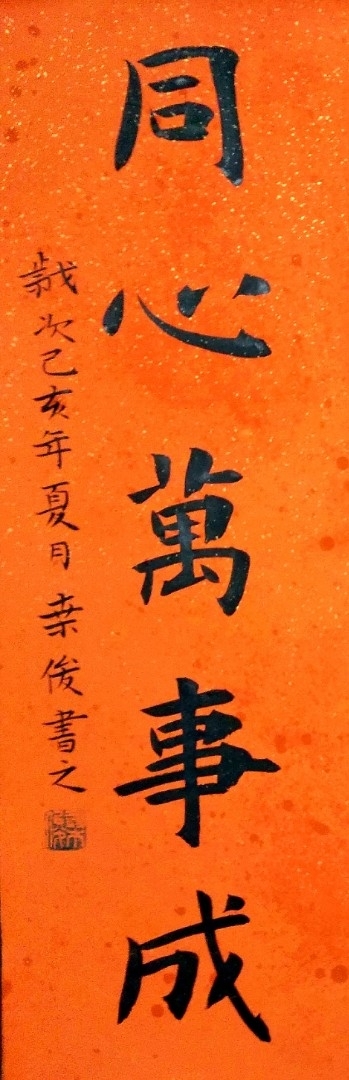 同心萬事成
歲次己亥年夏月桒俊書之